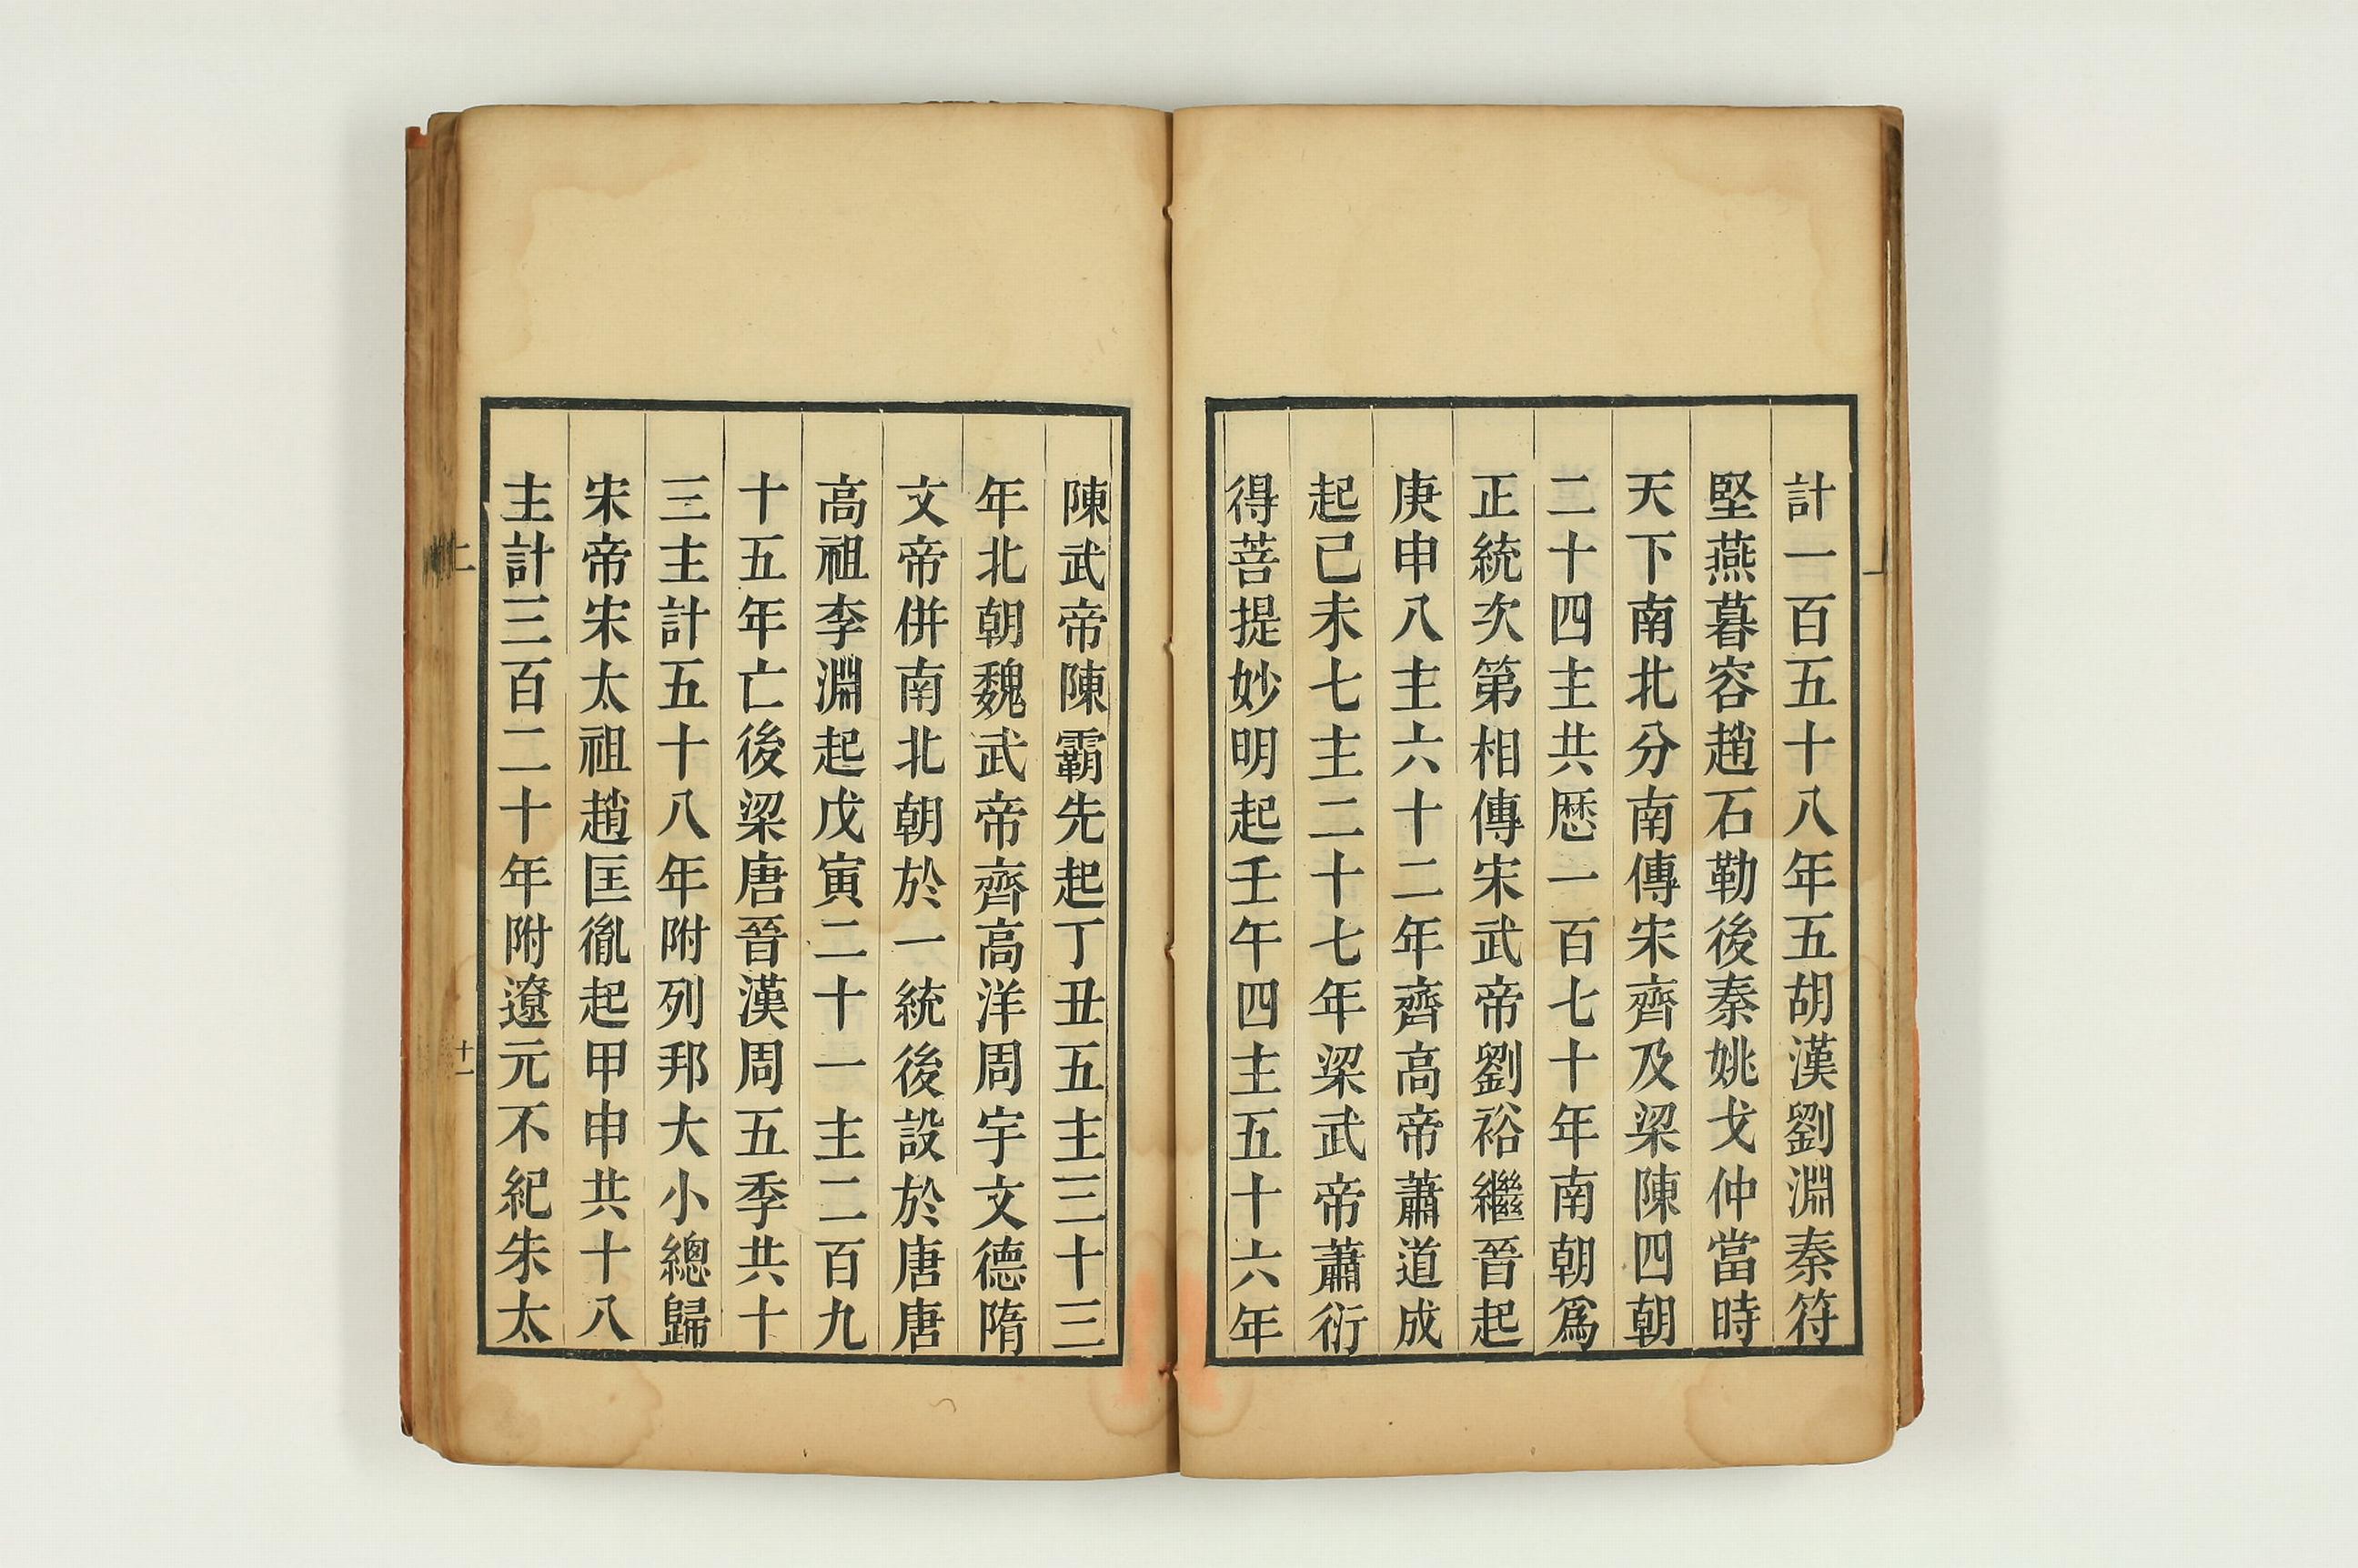 計一百五十八年五胡漢劉淵秦符
堅燕暮容趙石勒後秦姚戈仲當時
天下南北分南傳宋齊及梁陳四朝
二十四主共歴一百七十年南朝爲
正統次第相傳宋武帝劉裕繼晉起
庚申八主六十二年齊高帝蕭道成
起己未七主二十七年梁武帝蕭衍
得菩提妙明起壬午四主五十六年
陳武帝陳霸先起丁丑五主三十三
年北朝魏武帝齊高洋周宇文德隋
文帝併南北朝於一統後設於唐唐
高祖李淵起戊寅二十一主二百九
十五年亡後梁唐晉漢周五季共十
三主計五十八年附列邦大小總歸
宋帝宋太祖趙匡胤起甲申共十八
主計三百二十年附遼元不紀朱太
十一